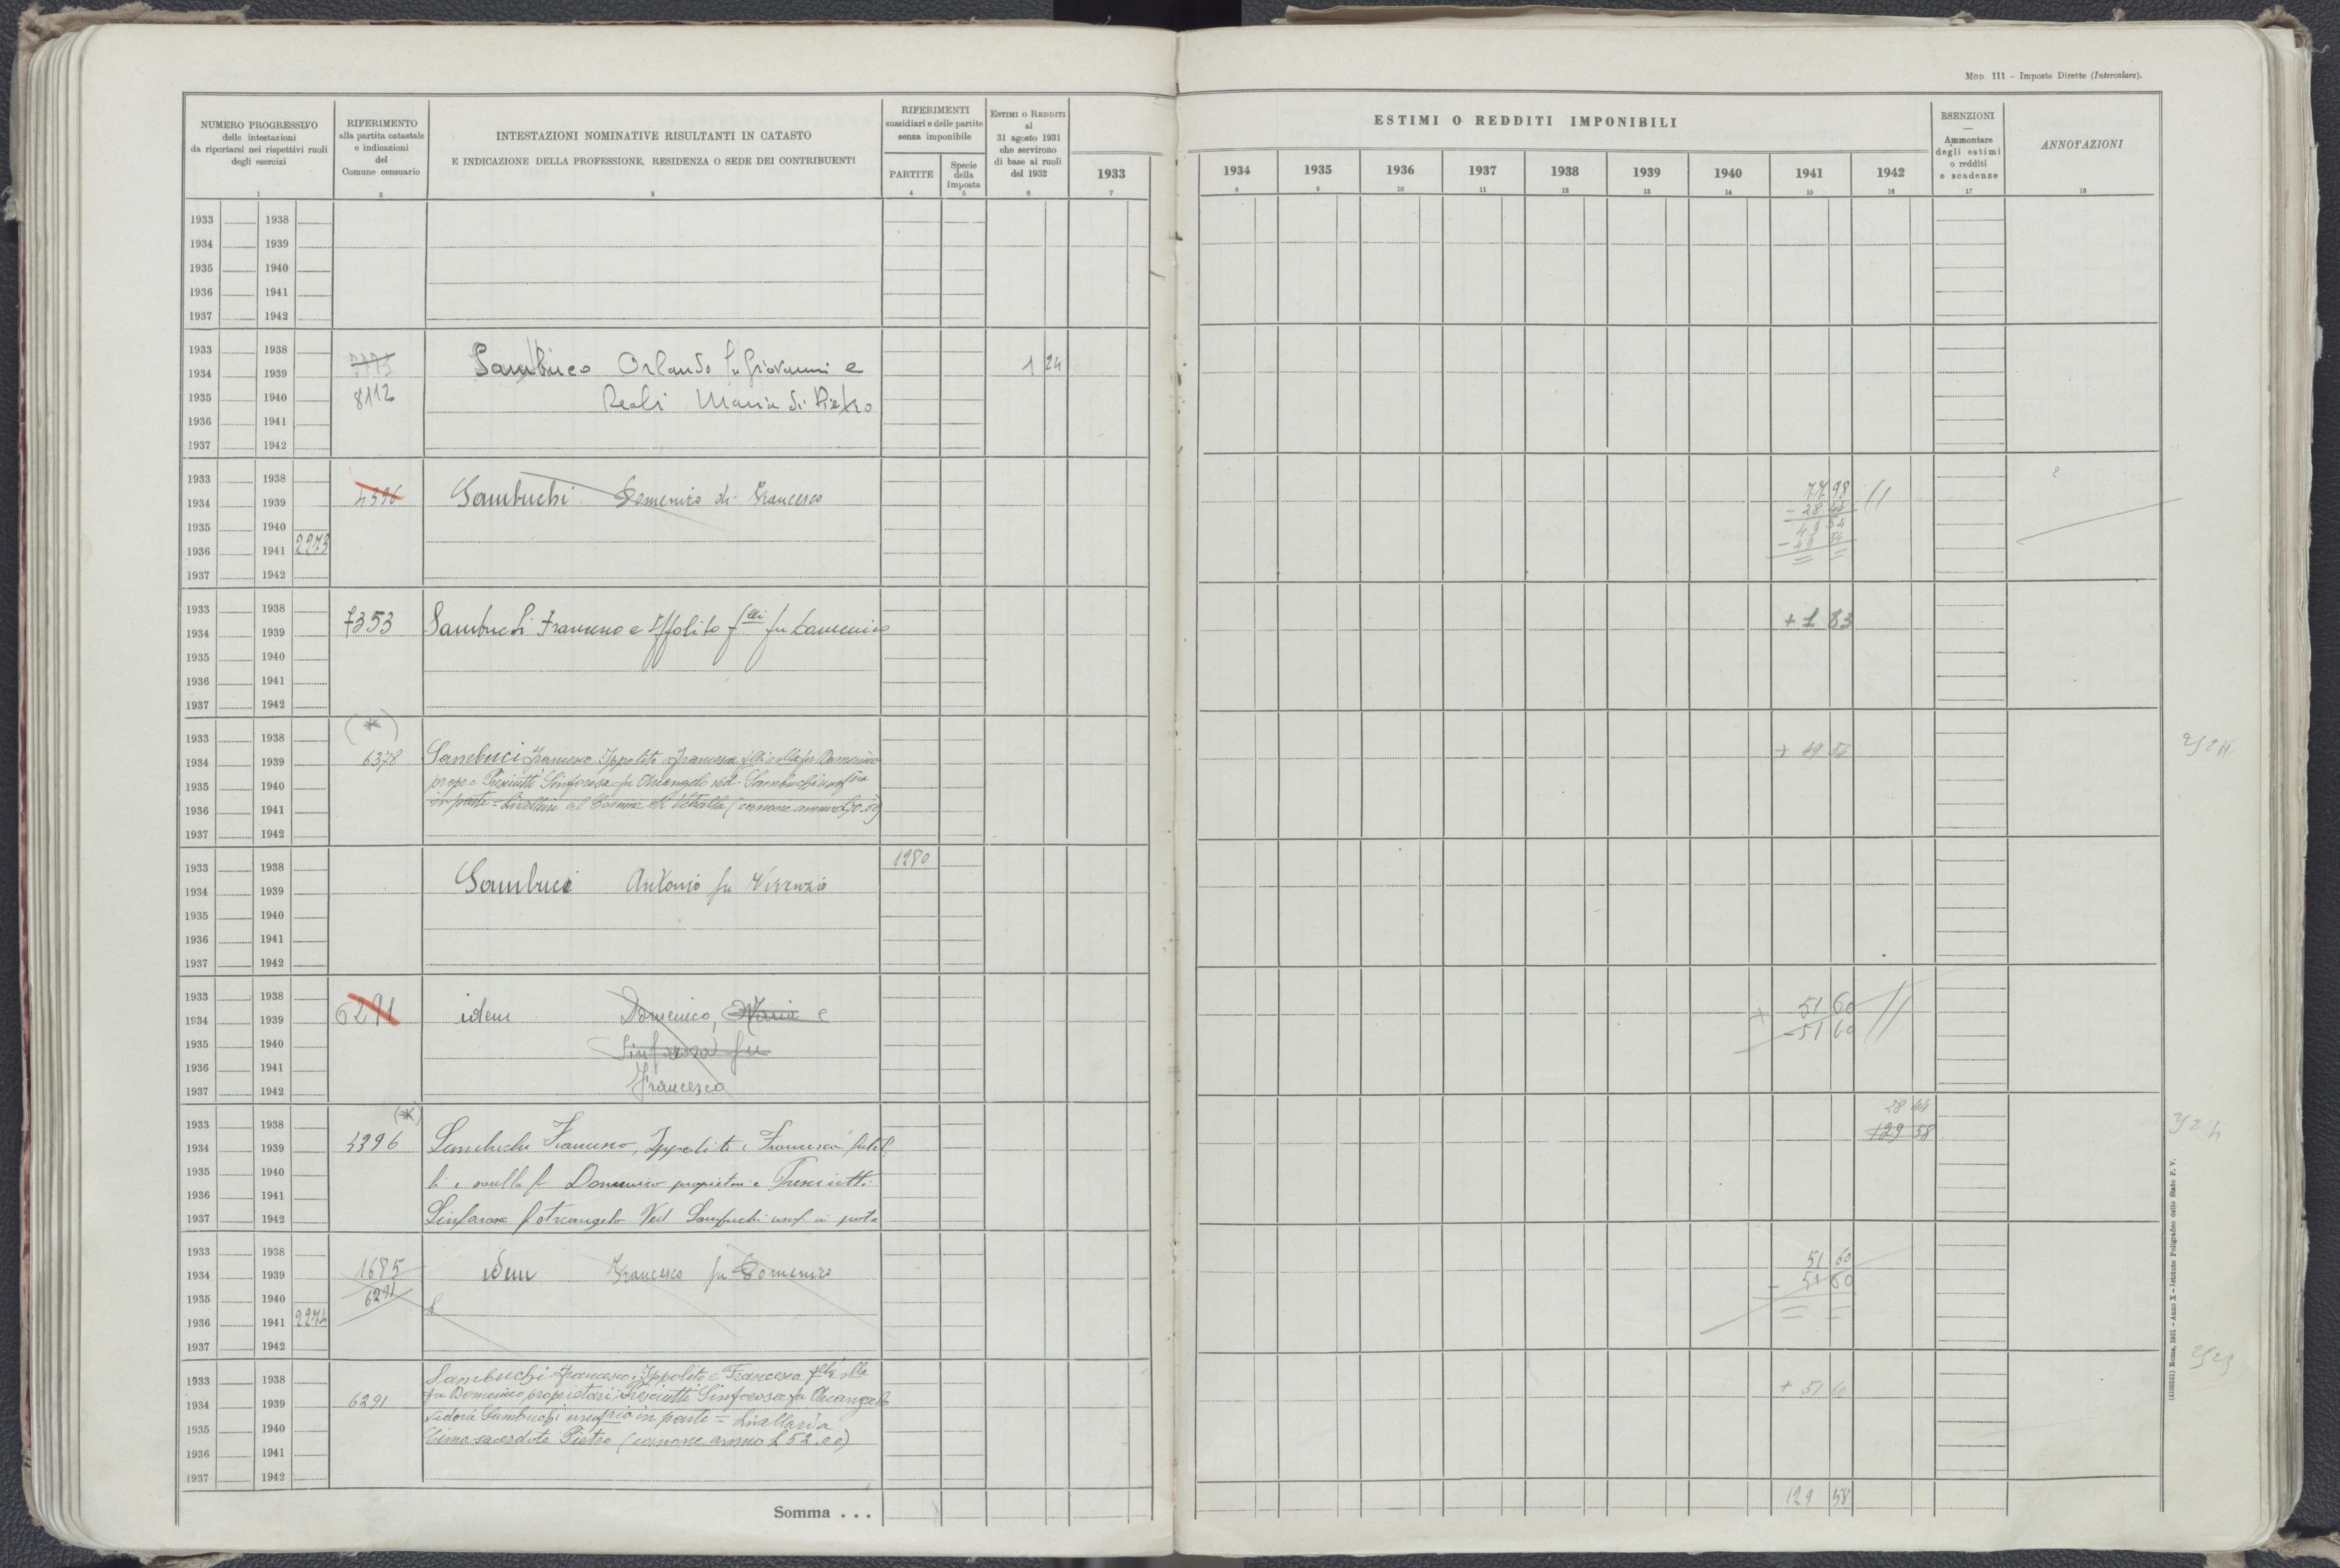 MOD. 111 – Imposte Dirette (Intercalare).
NUMERO PROGRESSIVO
delle intestazioni
da riportarsi nei rispettivi ruoli
degli esercizi
1
RIFERIMENTO
alla partita catastale
e indicazioni
del
Comune censuario
2
INTESTAZIONI NOMINATIVE RISULTANTI IN CATASTO
E INDICAZIONE DELLA PROFESSIONE, RESIDENZA O SEDE DEI CONTRIBUENTI
3
RIFERIMENTI
sussidiari e delle partite
senza imponibile
PARTITE
4
Specie
della
Imposta
5
ESTIMI O REDDITI
al
31 agosto 1931
che servirono
di base ai ruoli
del 1932
6
1933
7
ESTIMI O REDDITI IMPONIBILI
1934 1935 1936 1937 1938 1939 1940 1941 1942
8 9 10 11 12 13 14 15 16
ESENZIONI
—
Ammontare
degli estimi
o redditi
e scadenze
17
ANNOTAZIONI
18
1933 1938
1934 1939
1935 1940
1936 1941
1937 1942
1933 1938
1934 1939 Sambuco Orlando fu Giovanni e 1 24
1935 1940 8112 Reali Maria di Pietro
1936 1941
1937 1942
1933 1938
1934 1939 4396 Sambuchi Domenico di Francesco 77 98
- 28 44
1935 1940 49 54
1936 1941 2273 - 49 54
1937 1942
1933 1938
1934 1939 7353 Sambuchi Francesco e Ippolito f.lli fu Domenico + 1 83
1935 1940
1936 1941
1937 1942
(*)
1933 1938
1934 1939 6378 Sambuci Francesco Ippolito e Francesca f.lli e s.lla fu Domenico + 49 54
1935 1940 prop. e Presciutti Sinforosa fu Arcangelo ved. Sambuchi usuf.ria
1936 1941 in parte = Livellari al Comune di Vetralla (canone annuo
1937 1942
1933 1938 1280
1934 1939 Sambuci Antonio fu Vincenzo
1935 1940
1936 1941
1937 1942
1933 1938
1934 1939 6291 idem Domenico, Maria e + 51 60
1935 1940 Sinforosa fu - 51 60
1936 1941
1937 1942 Francesco
(*)
1933 1938 28 44
1934 1939 4396 Sambuchi Francesco, Ippolito e Francesca fratel +29 58
1935 1940 li e sorella fu Domenico proprietari e Presciutti
1936 1941
1937 1942 Sinforosa fu Arcangelo Ved Sambuchi usuf. in parte
1933 1938 51 60
1934 1939 1685 idem Francesco fu Domenico - 51 60
1935 1940 6291
1936 1941 2274
1937 1942
1933 1938 Sambuchi Francesco, Ippolito e Francesca f.lli s.lla
1934 1939 6291 fu Domenico proprietari; Presciutti Sinforosa fu Arcangelo + 51 60
1935 1940 vedova Sambuchi usuf.ria in parte = Livellaria
1936 1941 Cima sacerdote Pietro (canone annuo L 52.00)
1937 1942
Somma . . . 129 58
(4100551) Roma, 1931 – Anno X – Istituto Poligrafico dello Stato P. V.